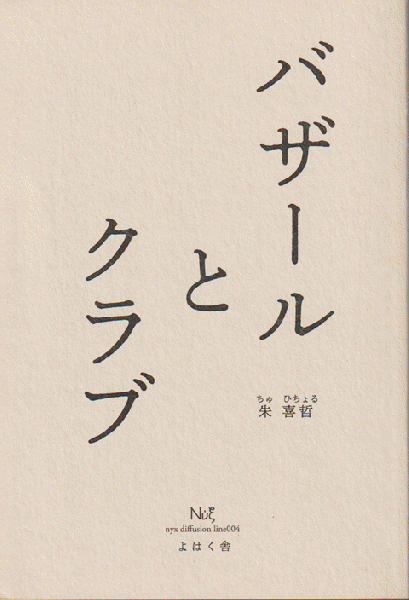 バザール
と
クラブ
ちゅ ひちょる
朱 喜哲
Νύξ
nyx diffusion line004
よはく舎